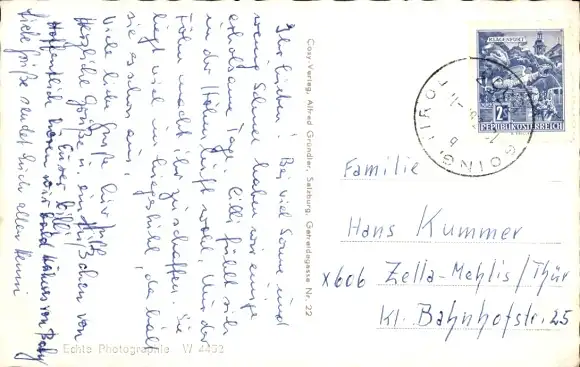 Ihr Lieben! Bei viel Sonne und
wenig Schnee haben wir einige
erholsame Tage. Lilli fühlt sich
in der Höhenluft wohl, nur der
Föhn macht ihr zu schaffen. Sie
liegt viel im Liegestuhl, da hält
sie es schon aus.
Viele liebe Grüße
Herzliche Grüße u. ein von
Eurer Lilli
Hoffentlich hören wir bald von Baby
Liebe Grüße sendet Euch allen
Cosy-Verlag, Alfred Gründler, Salzburg, Getreidegasse Nr. 22
Echte Photographie W 4432
KLAGENFURT
2S
REPUBLIK ÖSTERREICH
GOING, TIROL
Familie
Hans Kummer
x606 Zella-Mehlis/Thür
Kl. Bahnhofstr. 25